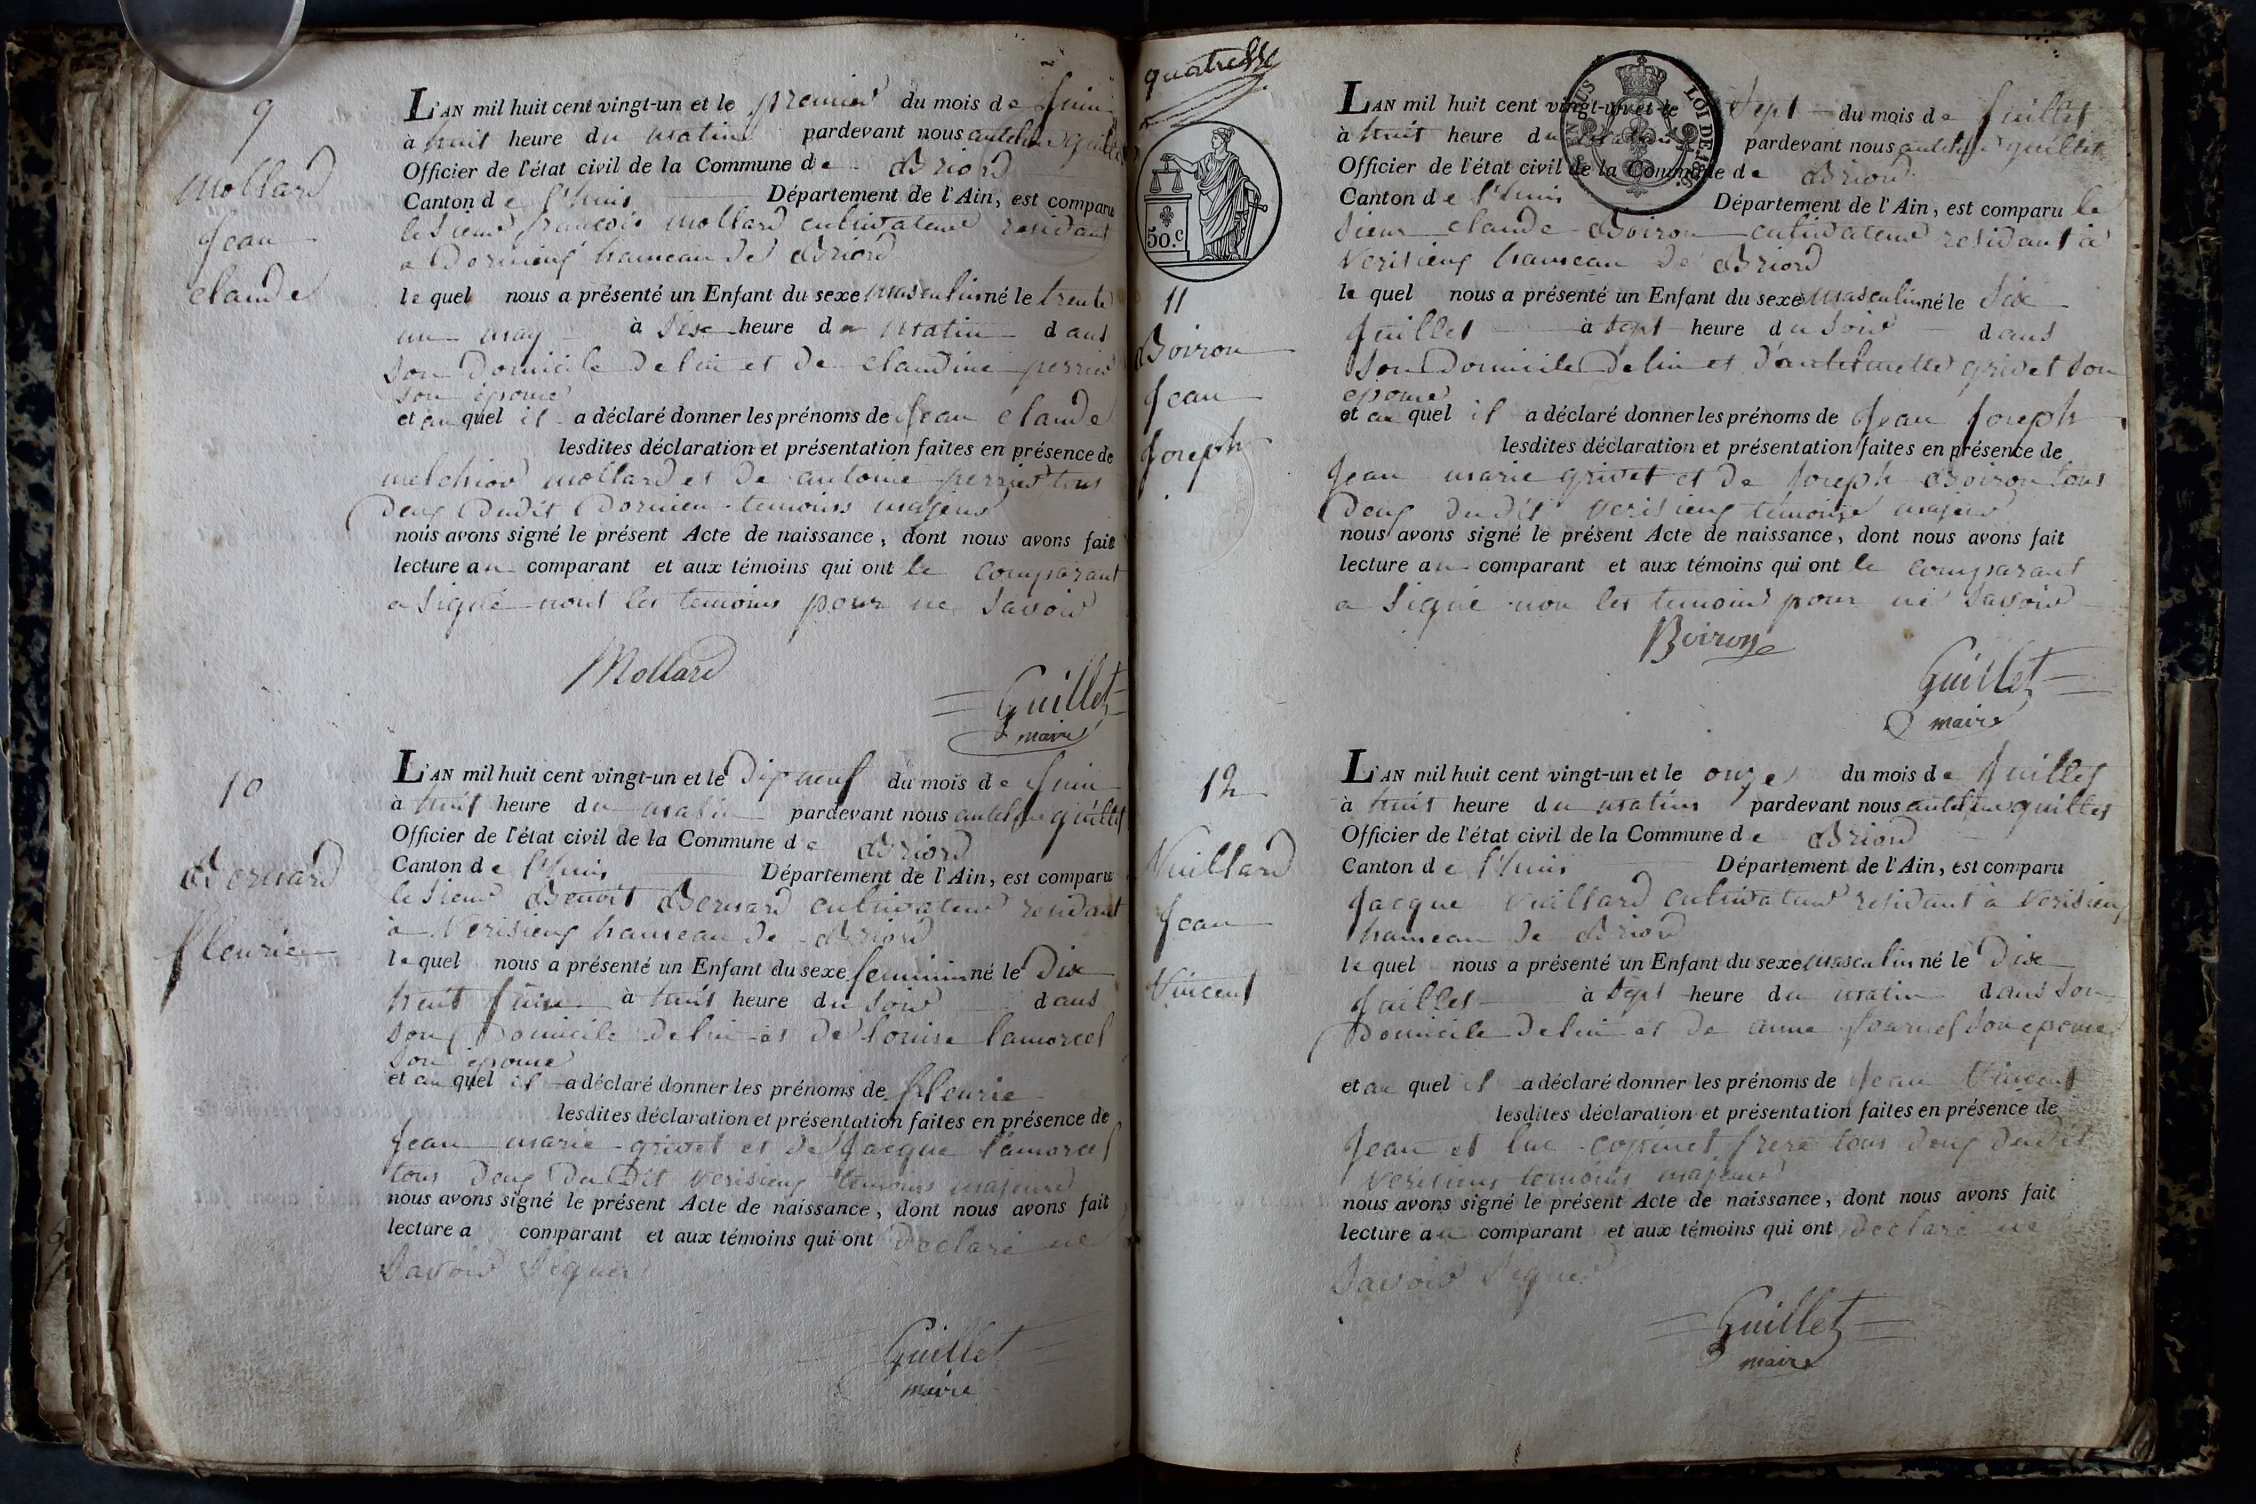 9
Mollard
Jean
claude
L'AN mil huit cent vingt-un et le premier du mois de Juin
à huit heure du matin pardevant nous antelme guillet
Officier de l'état civil de la Commune de Briord
Canton de l'huis Département de l'Ain, est comparu
le sieur françois mollard cultivateur residant
a Dornieux hameau de Briord
le quel nous a présenté un Enfant du sexe masculin né le trente
un may à six heure du matin dans
son Domicile de lui et de claudine perrier
son epouse
et au quel il a déclaré donner les prénoms de Jean claude
lesdites déclaration et présentation faites en présence de
melchior mollard et de antoine perrier tous
deux dudit Dornieu temoins majeurs
nous avons signé le présent Acte de naissance, dont nous avons fait
lecture au comparant et aux témoins qui ont le comparant
a signé nont les temoins pour ne savoir
Mollard
Guillet
maire
10
Bernard
fleurie
L'AN mil huit cent vingt-un et le dix neuf du mois de Juin
à huit heure du matin pardevant nous antelme guillet
Officier de l'état civil de la Commune de Briord
Canton de l'huis Département de l'Ain, est comparu
le sieur Benoit Bernard cultivateur residant
à Verisieux hameau de Briord
le quel nous a présenté un Enfant du sexe feminin né le Dix
huit Juin à huit heure du soir dans
son Domicile de lui et de louise lamorel
son epouse
et au quel il a déclaré donner les prénoms de fleurie
lesdites déclaration et présentation faites en présence de
Jean marie grivet et de Jacque lamorel
tous deux du Dit verisieux temoins majeurs
nous avons signé le présent Acte de naissance, dont nous avons fait
lecture a comparant et aux témoins qui ont declaré ne
savoir signer
Guillet
maire
quatre
50.c
LOI DE 1816.
11
Boiron
Jean
Joseph
L'AN mil huit cent vingt-un et le sept du mois de Juillet
à huit heure du matin pardevant nous antelme guillet
Officier de l'état civil de la Commune de Briord
Canton de l'huis Département de l'Ain, est comparu le
sieur claude Boiron cultivateur residant à
Verisieux hameau de Briord
le quel nous a présenté un Enfant du sexe masculin né le Six
Juillet à sept heure du soir dans
son Domicile de lui et d'antelmette grivet son
epouse
et au quel il a déclaré donner les prénoms de Jean Joseph
lesdites déclaration et présentation faites en présence de
Jean marie grivet et de Joseph Boiron tous
Deux dudit verisieux temoins majeur
nous avons signé le présent Acte de naissance, dont nous avons fait
lecture au comparant et aux témoins qui ont le comparant
a signé non les temoins pour ne savoir
Boiron
Guillet
maire
12
Vuillard
Jean
Vincent
L'AN mil huit cent vingt-un et le onze du mois de Juillet
à huit heure du matin pardevant nous antelme guillet
Officier de l'état civil de la Commune de Briord
Canton de l'huis Département de l'Ain, est comparu
Jacque Vuillard cultivateur residant à Verisieux
hameau de Briord
le quel nous a présenté un Enfant du sexe masculin né le Dix
Juillet à sept heure du matin dans son
Domicile de lui et de anne fournel son epouse
et au quel il a déclaré donner les prénoms de Jean Vincent
lesdites déclaration et présentation faites en présence de
Jean et luc copinet frere tous deux dudit
Verisieux temoins majeurs
nous avons signé le présent Acte de naissance, dont nous avons fait
lecture au comparant et aux témoins qui ont declaré ne
savoir signer
Guillet
maire